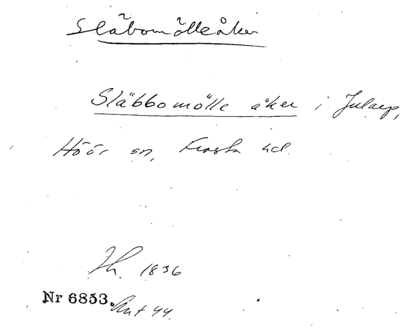 Släbomölleåker
Släbbomölle åker i Jularp,
Höör sn, Frosta hd.
Jh. 1836
Nr 6853. Ant 44